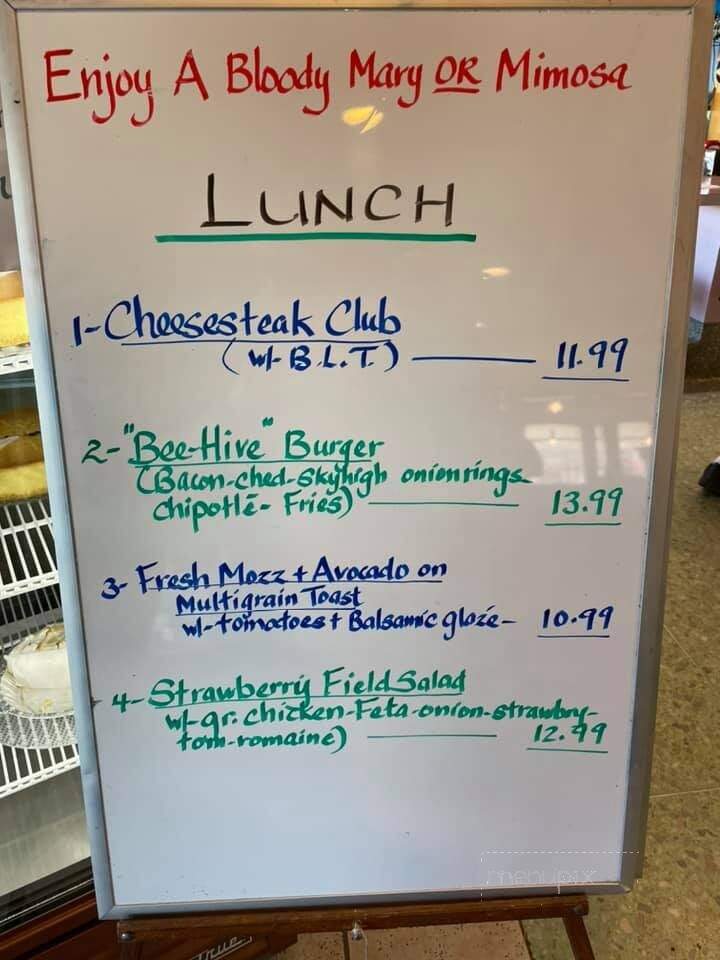 Enjoy A Bloody Mary OR Mimosa
LUNCH
1- Cheesesteak Club
(w/- B.L.T.) 11.99
2- "Bee-Hive" Burger
(Bacon-ched-Skyhigh onion rings
chipotlé- Fries) 13.99
3- Fresh Mozz + Avocado on
Multigrain Toast
w/- tomatoes + Balsamic glaze- 10.99
4- Strawberry Field Salad
w/- gr. chicken-Feta-onion-strawbry-
tom-romaine) 12.99
menupix
True